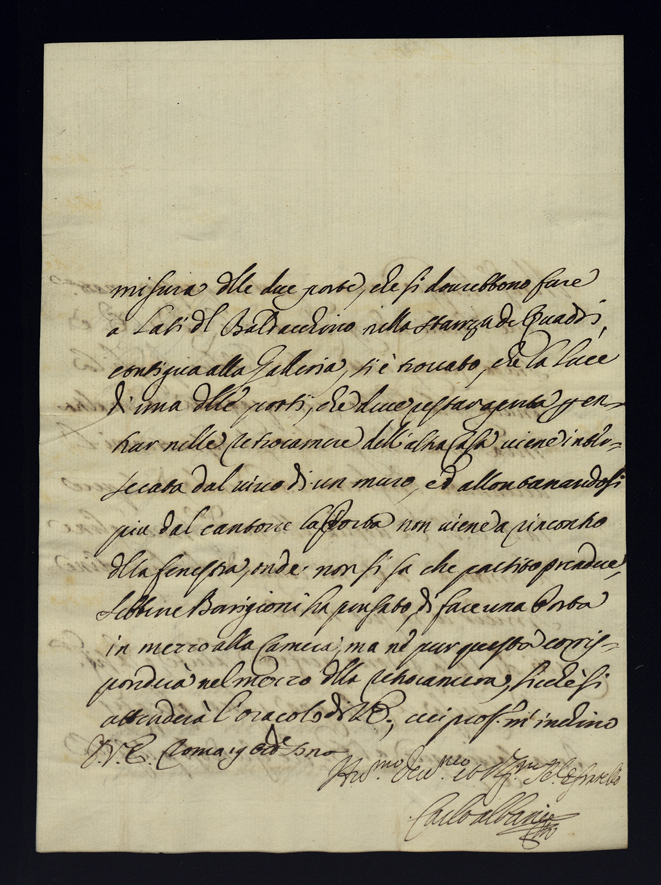 misura delle due porte, che si dourebbono fare
a Lati del Baldacchino nella stanza de Quadri,
contigua alla Galleria, si è trouato, che la Luce
di una delle porti, che deue restar aperta per en-
trar nelle retrocamere dell'altra Casa uiene inter-
secata dal uiuo di un muro, ed allontanandosi
piu dal cantone la Porta non uiene a rincontro
della fenestra, onde non si sa che partito prendere,
Sebbene Barigioni ha pensato di fare una Porta
in mezzo alla Camera; ma ne pur questa corris-
ponderà nel mezzo della retrocamera, sicchè si
attenderà l'oracolo di V.E., cui prof. m'inchino
D.V.E. Roma 9
Carlo Albani